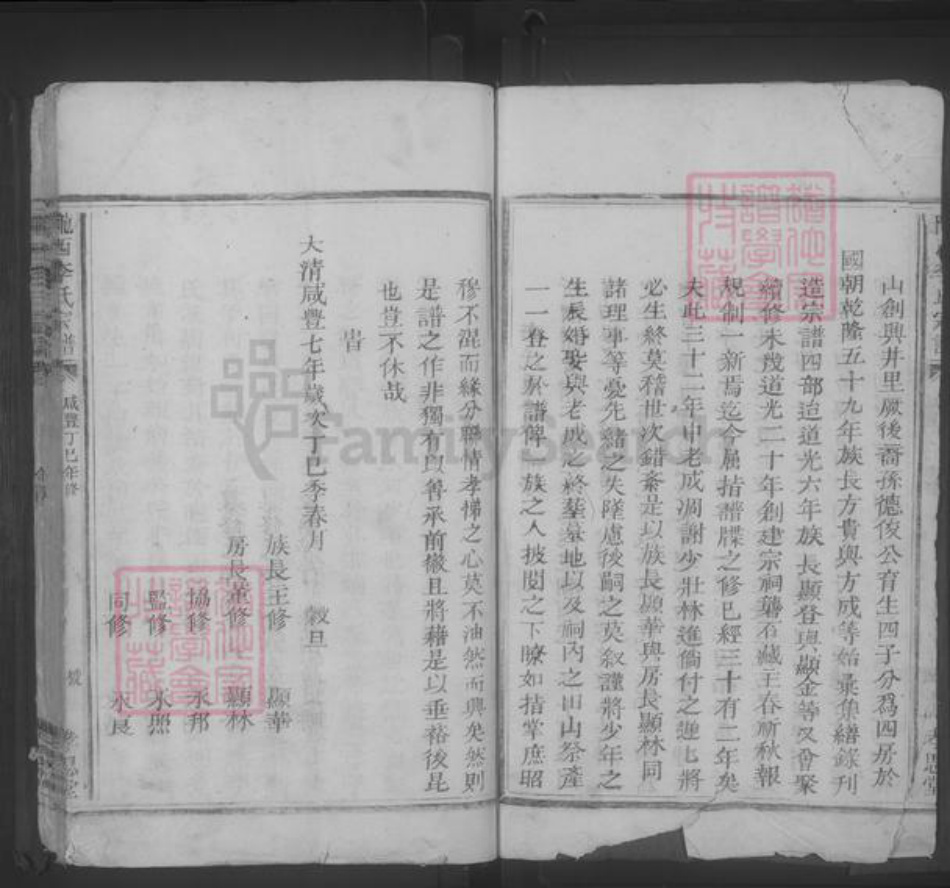 山創興井里厥後裔孫德俊公育生四子分爲四房於
國朝乾隆五十九年族長方貴與方成等始彙集繕錄刊
造宗譜四部迨道光六年族長顯登與顯金等又會聚
續修未幾道光二十年創建宗祠龔石藏王春祈秋報
規制一新焉迄今屈指譜牒之修已經三十有二年矣
夫此三十二年中老成凋謝少壯林進倘付之迆匕將
必生終莫稽世次錯紊是以族長顯華與房長顯林同
諸理事等憂先緒之失墜慮後嗣之莫叙謹將少年之
生辰婚娶與老成之終塟墓地以及祠內之田山祭產
一一登之於譜俾一族之人披閱之下瞭如指掌庶昭
穆不混而緣分聯情孝悌之心莫不油然而興矣然則
是譜之作非獨有以善承前徽且將藉是以垂裕後昆
也豈不休哉
旹
大清咸豐七年歲次丁巳季春月 穀旦
族長主修 顯華
房長董修 顯林
協修 永邦
監修 永照
同修 永長
隴西李氏宗譜 咸豐丁巳年修 孝思堂
FamilySearch